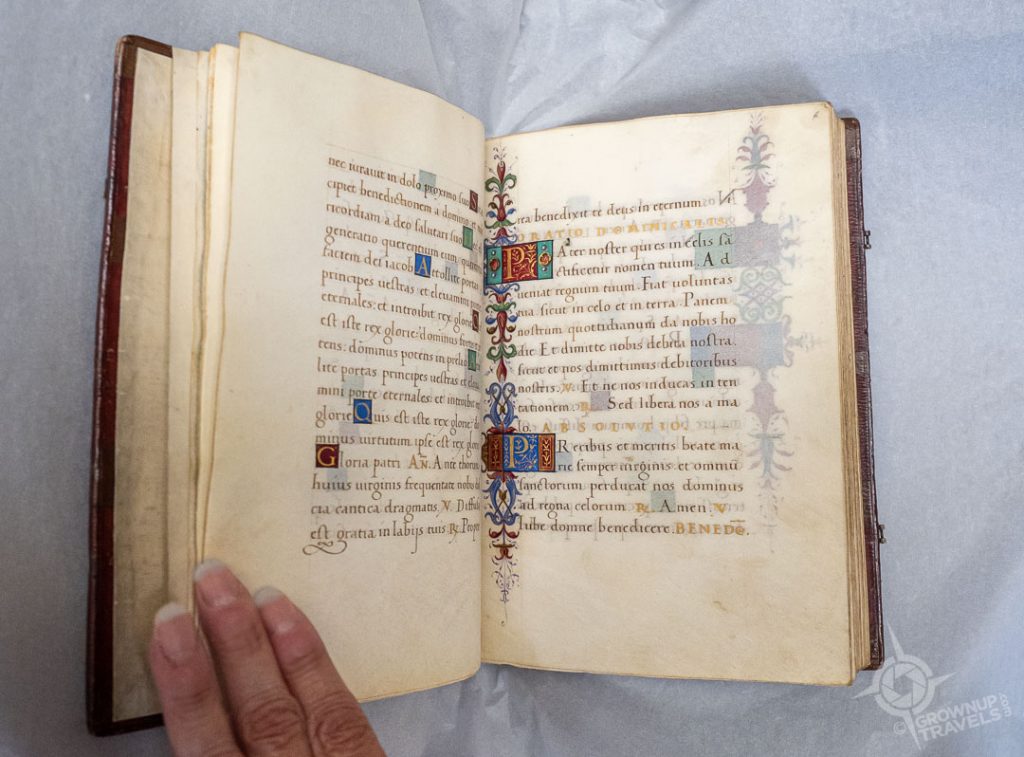 nec iurauit in dolo proximo suo S
cipiet benedictionem a domino et
ricordiam a deo salutari suo
generatio querentium eum querentium
faciem dei iacob A ttollite portas
principes uestras et eleuamini porte
eternales: et introibit rex glorie
est iste rex glorie: dominus fortis
tens: dominus potens in prelio
lite portas principes uestras et eleua
mini porte eternales: et introibit rex
glorie Q uis est iste rex glorie: do
minus uirtutum ipse est rex glorie
G loria patri AÑ. Ante thorum
huius uirginis frequentate nobis dul
cia cantica dragmatis V. Diffusa
est gratia in labijs tuis R. Prope
rea benedixit te deus in eternum
ORATIO DOMINICALIS.
P Ater noster qui es in celis sā
ctificetur nomen tuum. A d
ueniat regnum tuum. Fiat uoluntas
tua. sicut in celo et in terra. Panem
nostrum quottidianum da nobis ho
die. Et dimitte nobis debita nostra.
sicut et nos dimittimus debitoribus
nostris. V. Et ne nos inducas in ten
tationem. R. Sed libera nos a ma
lo. ABSOLVTIO.
P Recibus et meritis beate ma
rie semper uirginis et omniū
sanctorum perducat nos dominus
ad regna celorum. R. Amen. V.
Iube domne benedicere. BENEDO̅.
© GROWNUP
TRAVELS.COM